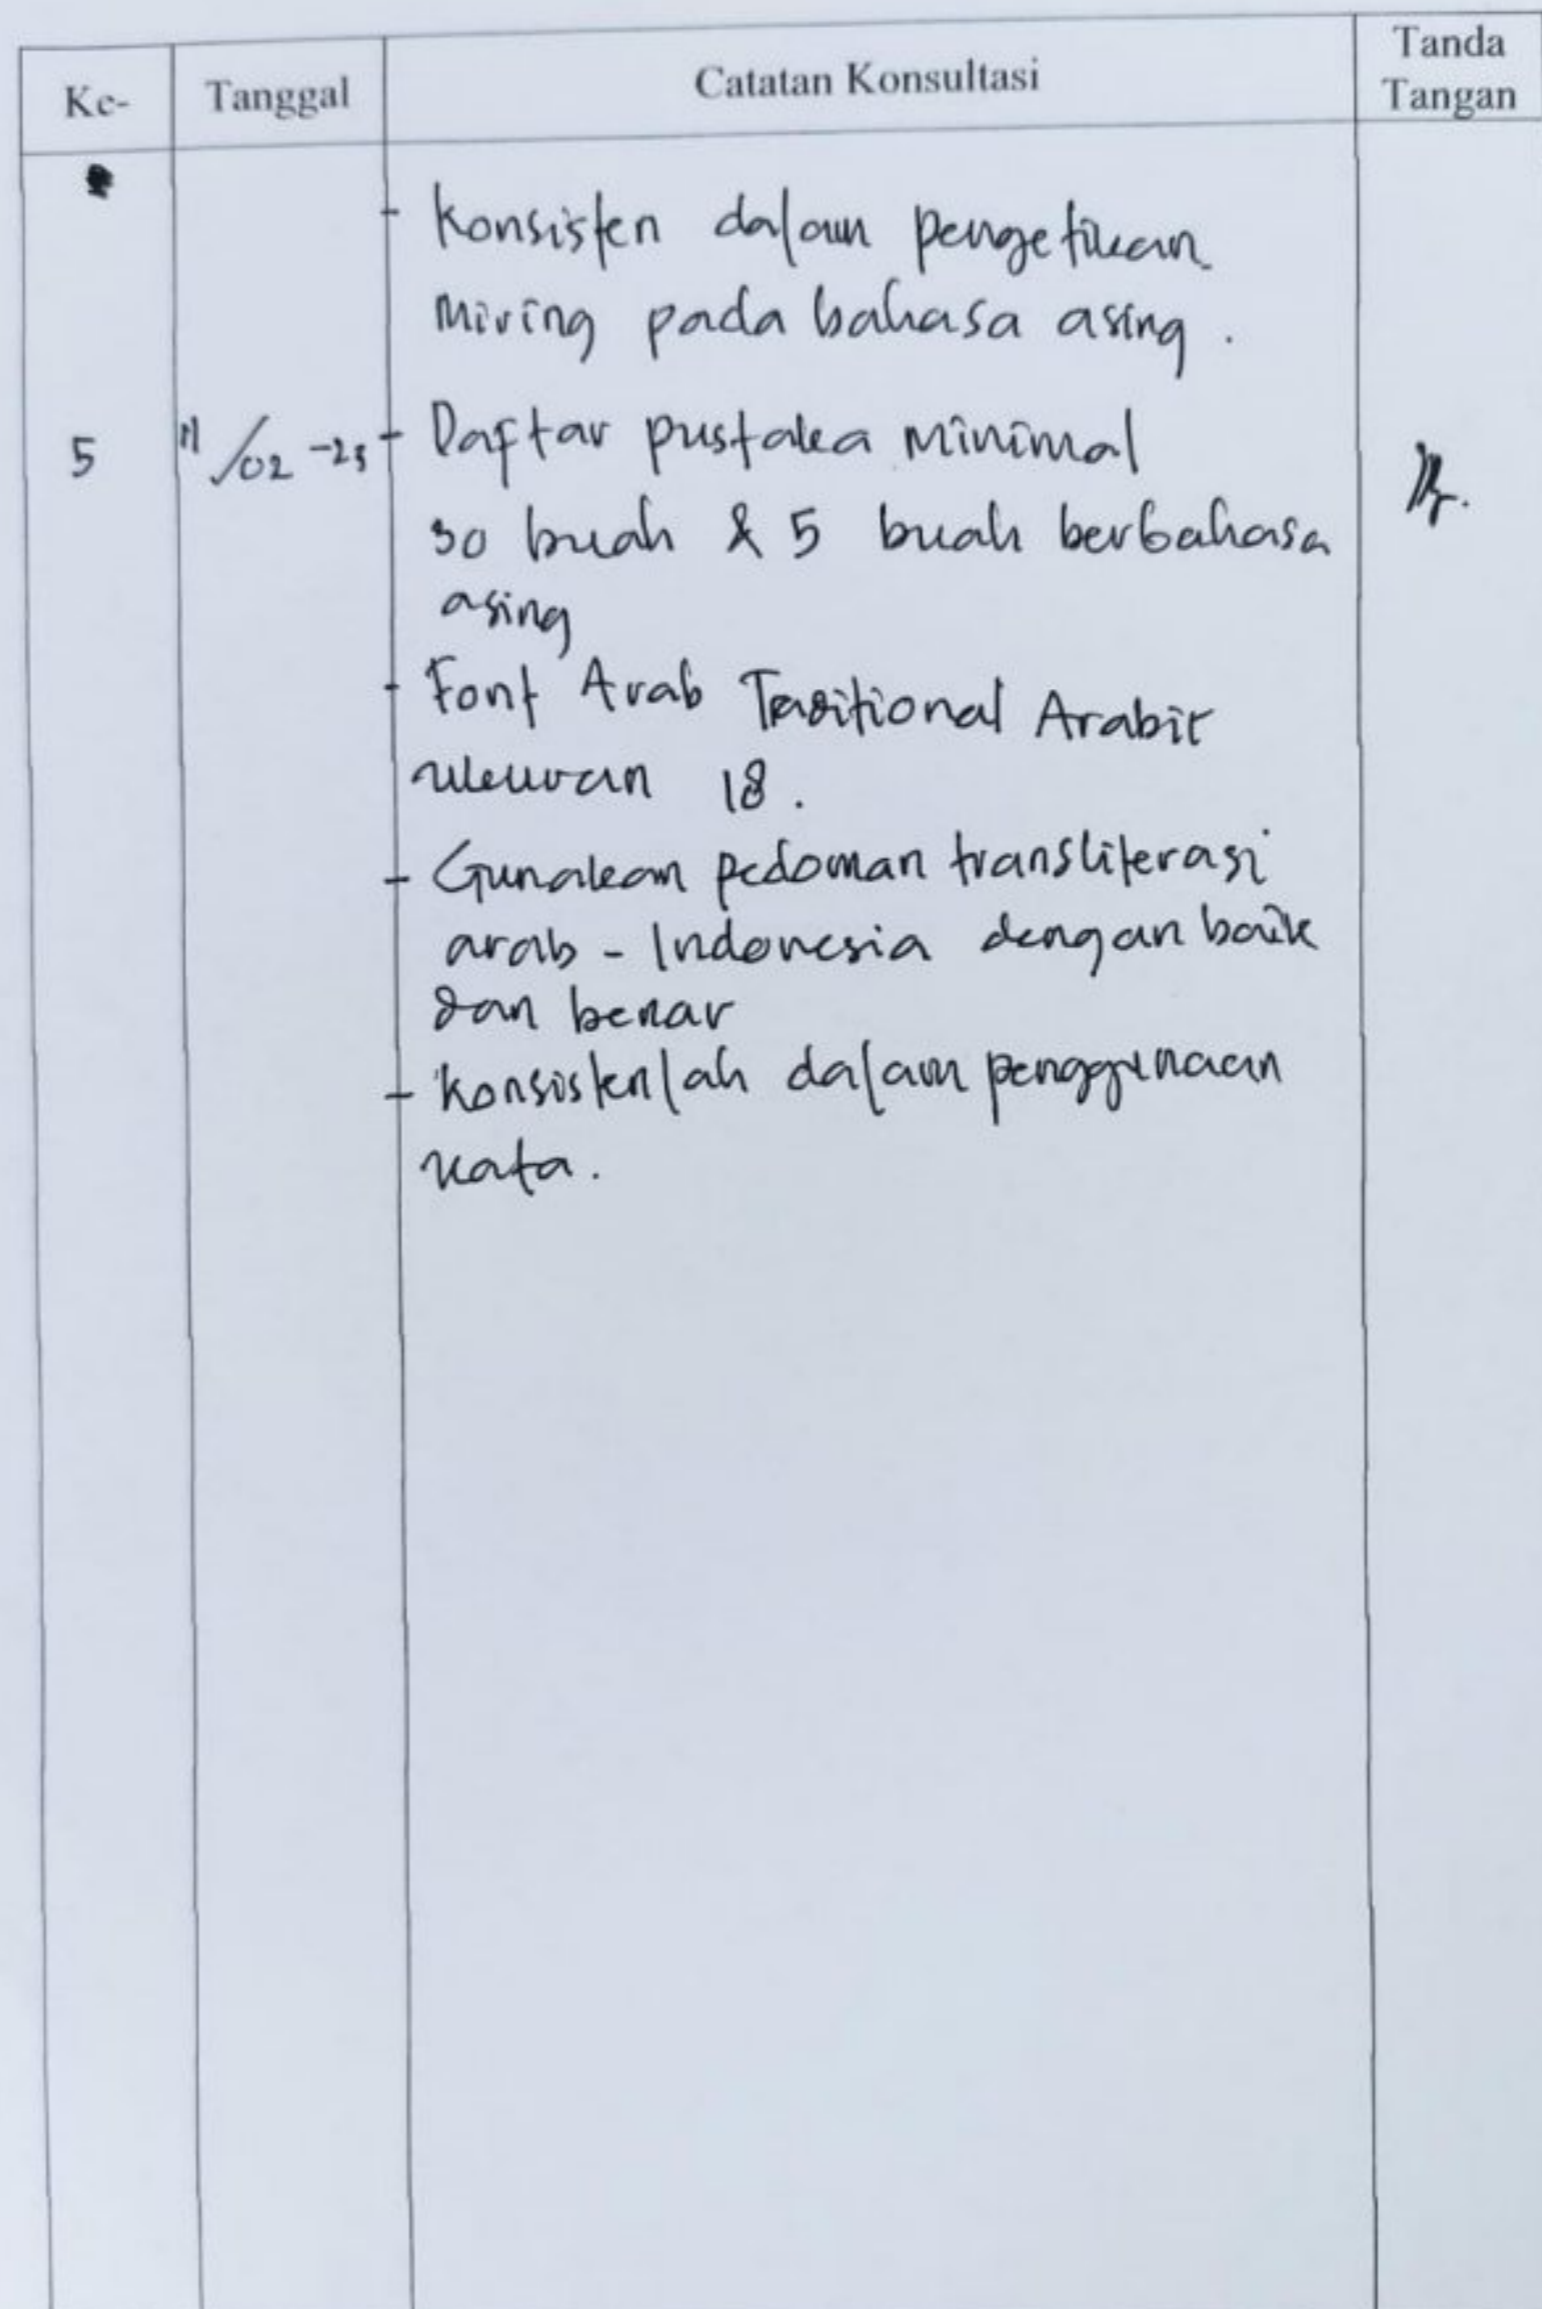 Ke-
Tanggal
Catatan Konsultasi
Tanda
Tangan
- Konsisten dalam pengetikan
miring pada bahasa asing.
5
11/02-23
- Daftar pustaka minimal
30 buah & 5 buah berbahasa
asing
- Font Arab Tasitional Arabic
ukuran 18.
- Gunakan pedoman transliterasi
arab - Indonesia dengan baik
dan benar
- Konsistenlah dalam penggunaan
kata.